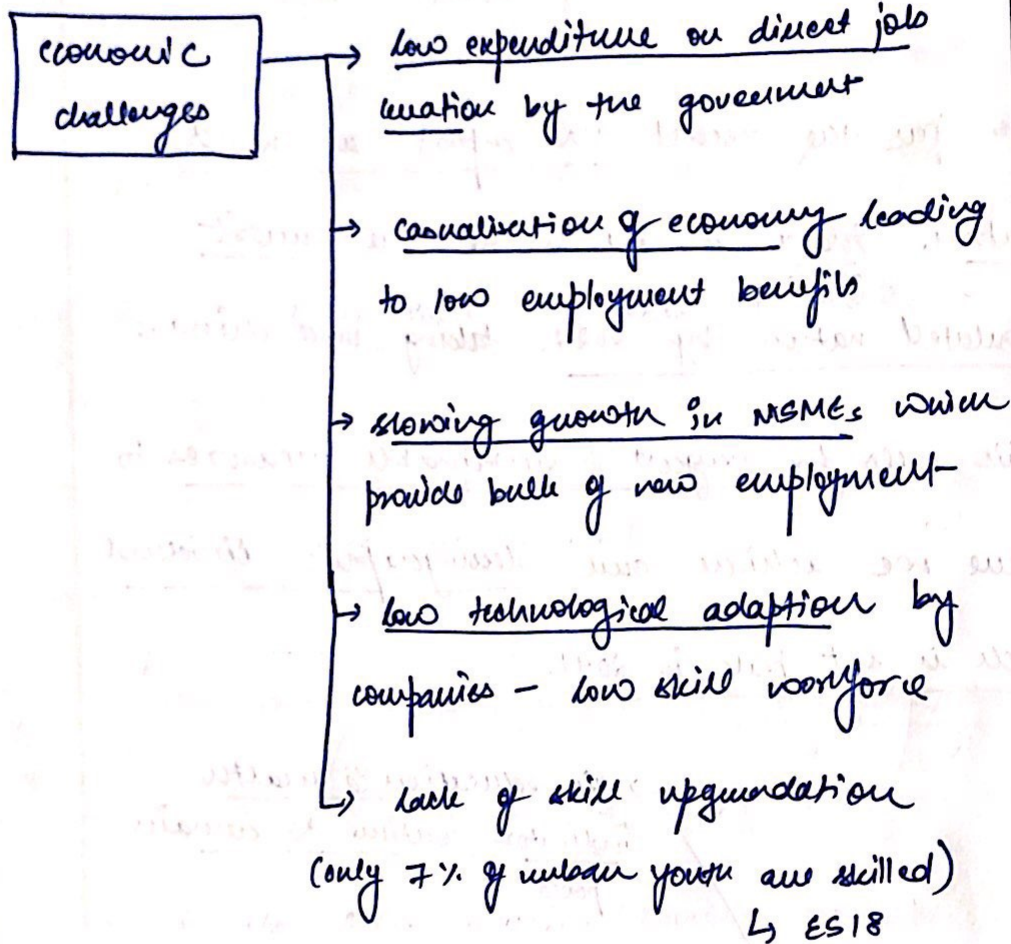 economic
challenges
→ low expenditure on direct job
creation by the government
→ casualisation of economy leading
to low employment benefits
→ slowing growth in MSMEs which
provide bulk of new employment
→ low technological adaption by
companies - low skill workforce
↳ lack of skill upgradation
(only 7% of urban youth are skilled)
↳ ES18